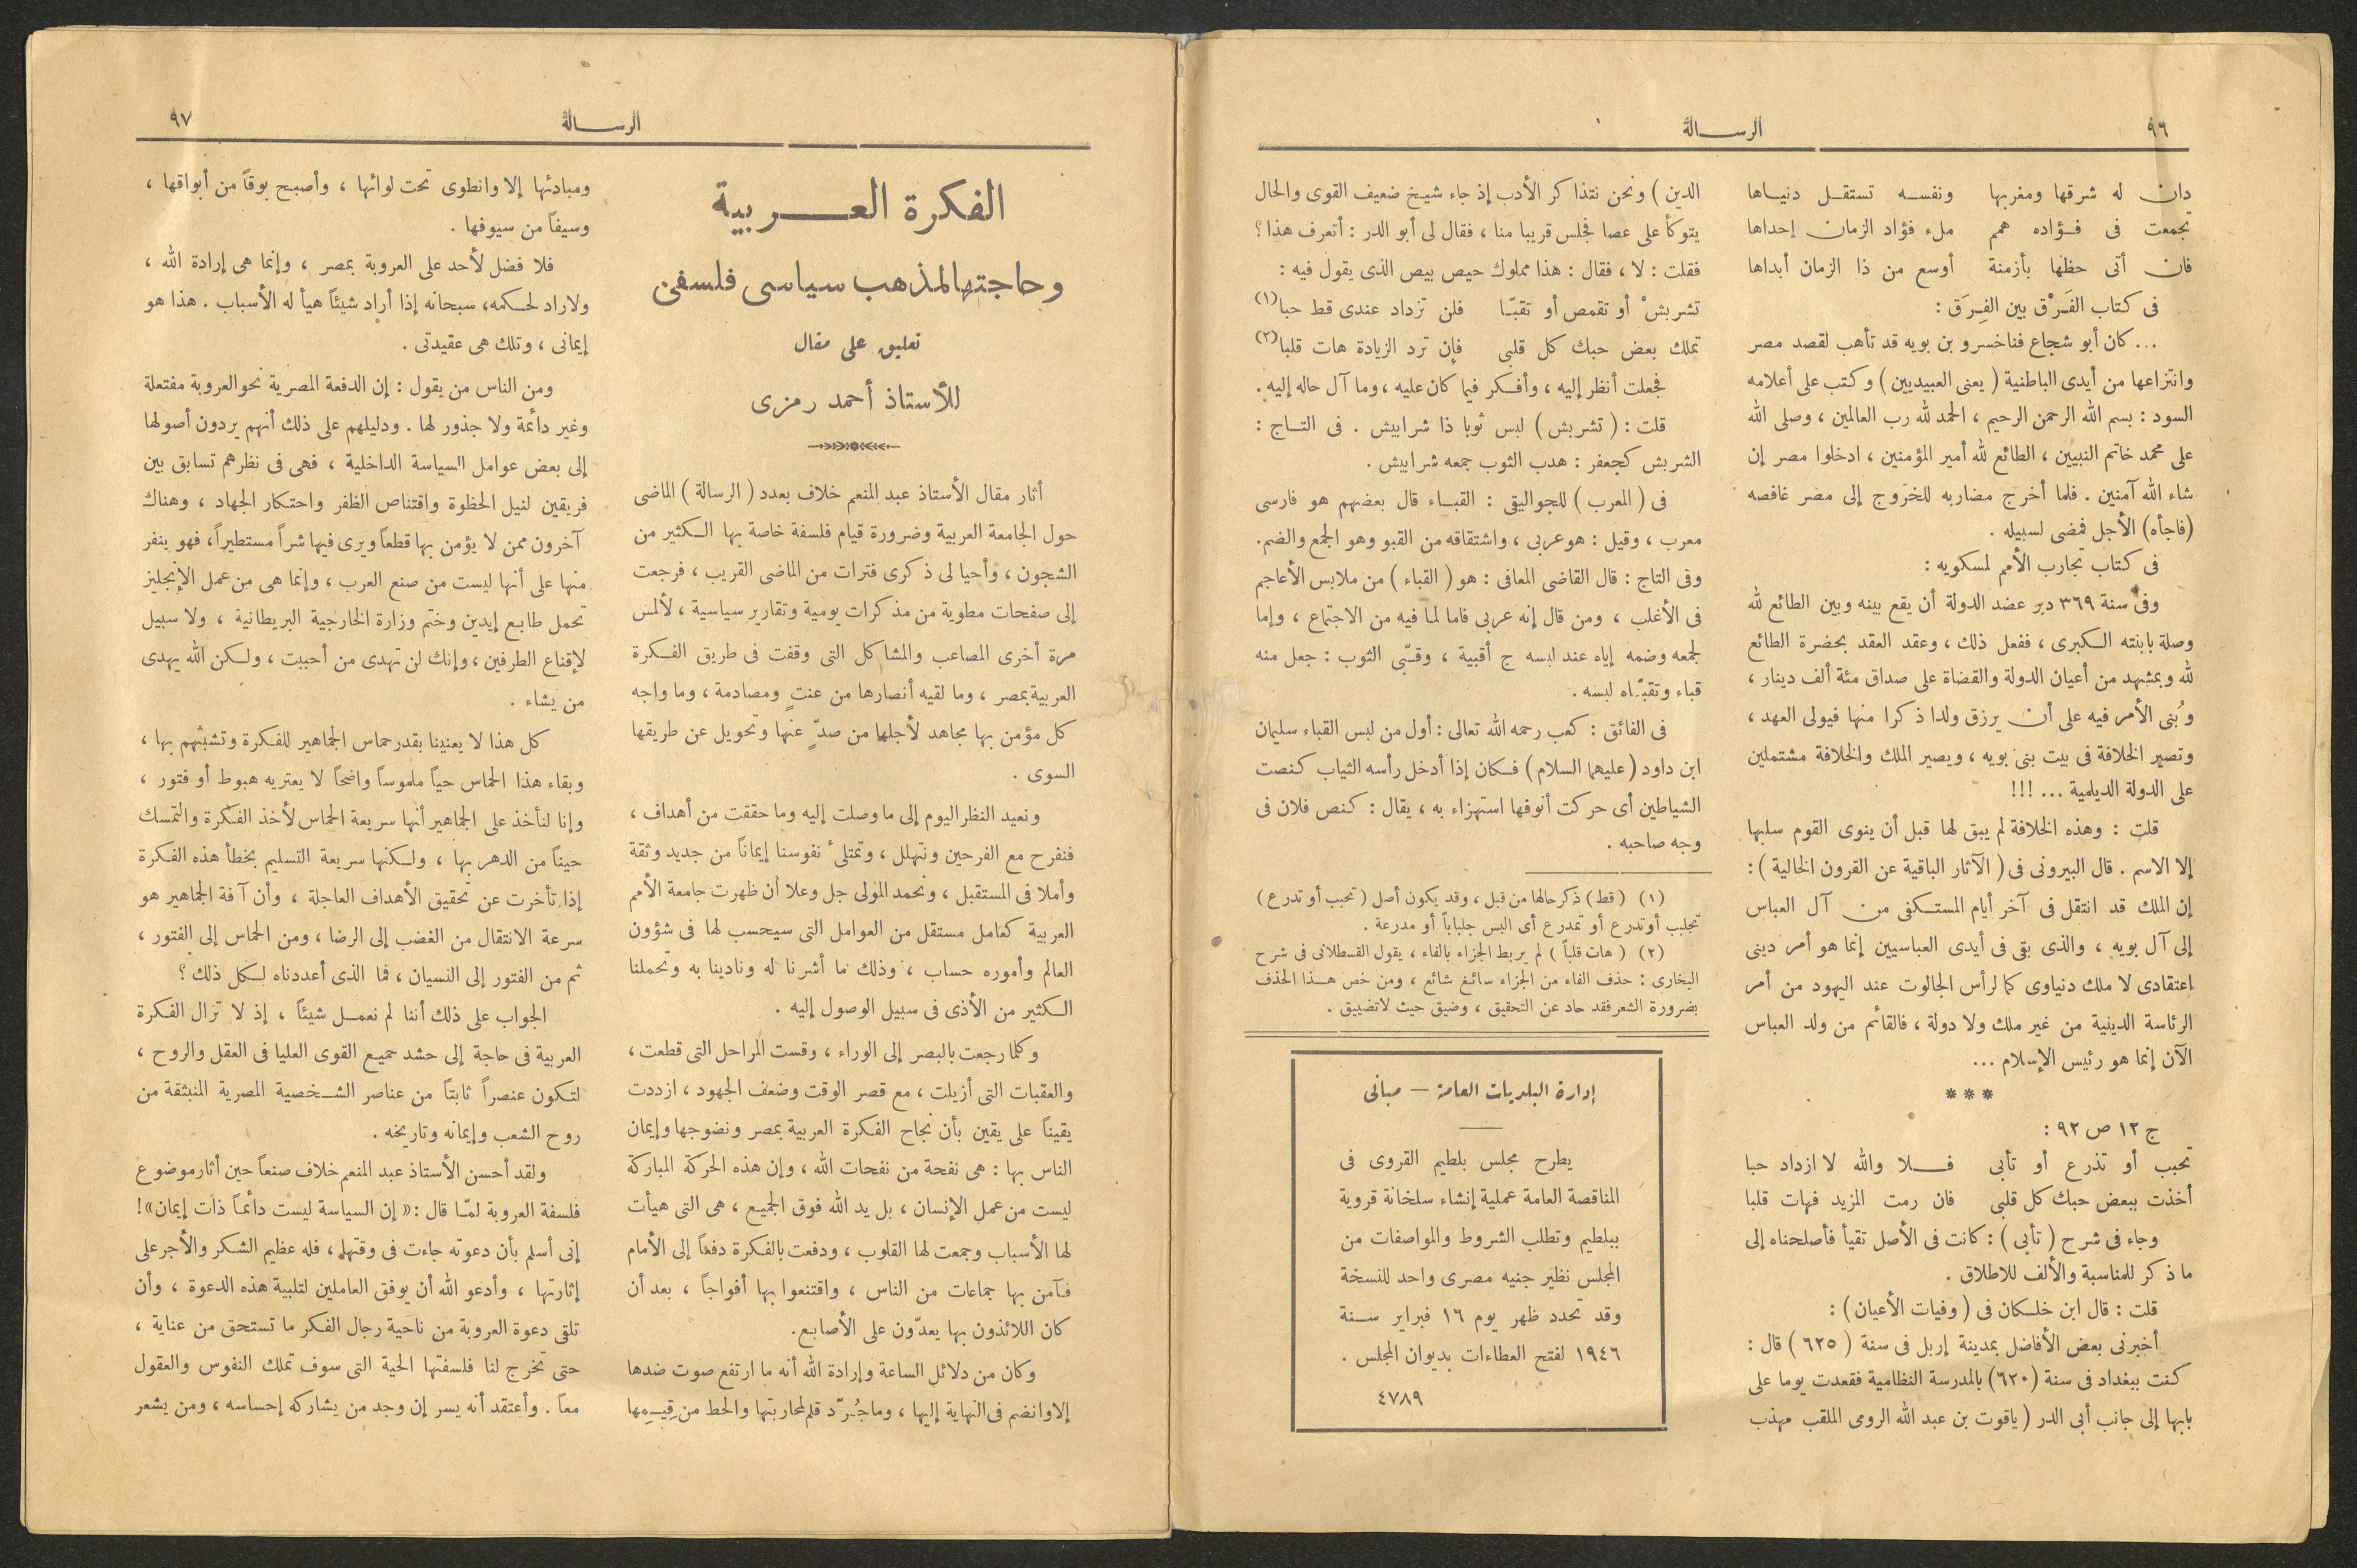 ٩٦
الرسالة
دان له شرقها ومغربها ونفسه تستقل دنياها
تجمعت فى فؤاده همم ملء فؤاد الزمان إحداها
فان أتى حظها بأزمنة أوسع من ذا الزمان أبداها
فى كتاب الفَرْق بين الفِرَق :
... كان أبو شجاع فناخسرو بن بويه قد تأهب لقصد مصر
وانتزاعها من أيدى الباطنية ( يعنى العبيديين ) وكتب على أعلامه
السود : بسم الله الرحمن الرحيم ، الحمد لله رب العالمين ، وصلى الله
على محمد خاتم النبيين ، الطائع لله أمير المؤمنين ، ادخلوا مصر إن
شاء الله آمنين . فلما أخرج مضاربه للخروج إلى مصر غافصه
(فاجأه) الأجل فمضى لسبيله .
فى كتاب تجارب الأمم لمسكويه :
وفى سنة ٣٦٩ دبر عضد الدولة أن يقع بينه وبين الطائع لله
وصلة بابنته الكبرى ، ففعل ذلك ، وعقد العقد بحضرة الطائع
لله وبمشهد من أعيان الدولة والقضاة على صداق مئة ألف دينار ،
وبُنى الأمر فيه على أن يرزق ولدا ذكرا منها فيولى العهد ،
وتصير الخلافة فى بيت بنى بويه ، ويصير الملك والخلافة مشتملين
على الدولة الديلمية ... !!!
قلت : وهذه الخلافة لم يبق لها قبل أن ينوى القوم سلبها
إلا الاسم . قال البيرونى فى ( الآثار الباقية عن القرون الخالية ) :
إن الملك قد انتقل فى آخر أيام المستكفى من آل العباس
إلى آل بويه ، والذى بقى فى أيدى العباسيين إنما هو أمر دينى
اعتقادى لا ملك دنياوى كما لرأس الجالوت عند اليهود من أمر
الرئاسة الدينية من غير ملك ولا دولة ، فالقائم من ولد العباس
الآن إنما هو رئيس الإسلام ...
***
ج ١٢ ص ٩٢ :
تحبب أو تذرع أو تأبى فلا والله لا ازداد حبا
أخذت ببعض حبك كل قلبى فان رمت المزيد فهات قلبا
وجاء فى شرح ( تأبى ) : كانت فى الأصل تقيأ فأصلحناه إلى
ما ذكر للمناسبة والألف للاطلاق .
قلت : قال ابن خلكان فى ( وفيات الأعيان ) :
أخبرنى بعض الأفاضل بمدينة إربل فى سنة ( ٦٢٥ ) قال :
كنت ببغداد فى سنة (٦٢٠) بالمدرسة النظامية فقعدت يوما على
بابها إلى جانب أبى الدر ( ياقوت بن عبد الله الرومى الملقب مهذب
الدين ) ونحن نتذاكر الأدب إذ جاء شيخ ضعيف القوى والحال
يتوكأ على عصا فجلس قريبا منا ، فقال لى أبو الدر : أتعرف هذا ؟
فقلت : لا ، فقال : هذا مملوك حيص بيص الذى يقول فيه :
تشربشْ أو تقمص أو تقبّا فلن تزداد عندى قط حبا(١)
تملك بعض حبك كل قلبى فإن ترد الزيادة هات قلبا(٢)
فجعلت أنظر إليه ، وأفكر فيما كان عليه ، وما آل حاله إليه .
قلت : ( تشربش ) لبس ثوبا ذا شرابيش . فى التاج :
الشربش كجعفر : هدب الثوب جمعه شرابيش .
فى ( المعرب ) للجواليقى : القباء قال بعضهم هو فارسى
معرب ، وقيل : هو عربى ، واشتقاقه من القبو وهو الجمع والضم .
وفى التاج : قال القاضى المعافى : هو ( القباء ) من ملابس الأعاجم
فى الأغلب ، ومن قال إنه عربى فاما لما فيه من الاجتماع ، وإما
لجمعه وضمه إياه عند لبسه ج أقبية ، وقبّى الثوب : جعل منه
قباء وتقبّاه لبسه .
فى الفائق : كعب رحمه الله تعالى : أول من لبس القباء سليمان
ابن داود ( عليهما السلام ) فكان إذا أدخل رأسه الثياب كنصت
الشياطين أى حركت أنوفها استهزاء به ، يقال : كنص فلان فى
وجه صاحبه .
(١) ( قط ) ذكر حالها من قبل ، وقد يكون أصل ( تحبب أو تدرع )
تجلبب أو تدرع أو تمدرع أى البس جلباباً أو مدرعة .
(٢) ( هات قلباً ) لم يربط الجزاء بالفاء ، يقول القسطلانى فى شرح
البخارى : حذف الفاء من الجزاء سائغ شائع ، ومن خص هذا الحذف
بضرورة الشعر فقد حاد عن التحقيق ، وضيق حيث لا تضييق .
إدارة البلديات العامة — مبانى
يطرح مجلس بلطيم القروى فى
المناقصة العامة عملية إنشاء سلخانة قروية
ببلطيم وتطلب الشروط والمواصفات من
المجلس نظير جنيه مصرى واحد للنسخة
وقد تحدد ظهر يوم ١٦ فبراير سنة
١٩٤٦ لفتح العطاءات بديوان المجلس .
٤٧٨٩
الرسالة
٩٧
الفكرة العربية
وحاجتها لمذهب سياسى فلسفى
تعليق على مقال
للأستاذ أحمد رمزى
أثار مقال الأستاذ عبد المنعم خلاف بعدد ( الرسالة ) الماضى
حول الجامعة العربية وضرورة قيام فلسفة خاصة بها الكثير من
الشجون ، وأحيا لى ذكرى فترات من الماضى القريب ، فرجعت
إلى صفحات مطوية من مذكرات يومية وتقارير سياسية ، لألمس
مرة أخرى المصاعب والمشاكل التى وقفت فى طريق الفكرة
العربية بمصر ، وما لقيه أنصارها من عنتٍ ومصادمة ، وما واجه
كل مؤمن بها مجاهد لأجلها من صدّ عنها وتحويل عن طريقها
السوى .
ونعيد النظر اليوم إلى ما وصلت إليه وما حققت من أهداف ،
فنفرح مع الفرحين ونتهلل ، وتمتلىء نفوسنا إيماناً من جديد وثقة
وأملا فى المستقبل ، ونحمد المولى جل وعلا أن ظهرت جامعة الأمم
العربية كعامل مستقل من العوامل التى سيحسب لها فى شؤون
العالم وأموره حساب ، وذلك ما أشرنا له ونادينا به وتحملنا
الكثير من الأذى فى سبيل الوصول إليه .
وكلما رجعت بالبصر إلى الوراء ، وقست المراحل التى قطعت ،
والعقبات التى أزيلت ، مع قصر الوقت وضعف الجهود ، ازددت
يقيناً على يقين بأن نجاح الفكرة العربية بمصر ونضوجها وإيمان
الناس بها : هى نفحة من نفحات الله ، وإن هذه الحركة المباركة
ليست من عمل الإنسان ، بل يد الله فوق الجميع ، هى التى هيأت
لها الأسباب وجمعت لها القلوب ، ودفعت بالفكرة دفعاً إلى الأمام
فآمن بها جماعات من الناس ، واقتنعوا بها أفواجاً ، بعد أن
كان اللائذون بها يعدّون على الأصابع .
وكان من دلائل الساعة وإرادة الله أنه ما ارتفع صوت ضدها
إلا وانضم فى النهاية إليها ، وما جُرّد قلم لمحاربتها والحط من قِيَمِها
ومبادئها إلا وانطوى تحت لوائها ، وأصبح بوقاً من أبواقها ،
وسيفاً من سيوفها .
فلا فضل لأحد على العروبة بمصر ، وإنما هى إرادة الله ،
ولا راد لحكمه ، سبحانه إذا أراد شيئاً هيأ له الأسباب . هذا هو
إيمانى ، وتلك هى عقيدتى .
ومن الناس من يقول : إن الدفعة المصرية نحو العروبة مفتعلة
وغير دائمة ولا جذور لها . ودليلهم على ذلك أنهم يردون أصولها
إلى بعض عوامل السياسة الداخلية ، فهى فى نظرهم تسابق بين
فريقين لنيل الحظوة واقتناص الظفر واحتكار الجهاد ، وهناك
آخرون ممن لا يؤمن بها قطعاً ويرى فيها شراً مستطيراً ، فهو ينفر
منها على أنها ليست من صنع العرب ، وإنما هى من عمل الإنجليز
تحمل طابع إيدين وختم وزارة الخارجية البريطانية ، ولا سبيل
لإقناع الطرفين ، وإنك لن تهدى من أحببت ، ولكن الله يهدى
من يشاء .
كل هذا لا يعنينا بقدر حماس الجماهير للفكرة وتشبثهم بها ،
وبقاء هذا الحماس حياً ملموساً واضحاً لا يعتريه هبوط أو فتور ،
وإنا لنأخذ على الجماهير أنها سريعة الحماس لأخذ الفكرة والتمسك
حيناً من الدهر بها ، ولكنها سريعة التسليم بخطأ هذه الفكرة
إذا تأخرت عن تحقيق الأهداف العاجلة ، وأن آفة الجماهير هو
سرعة الانتقال من الغضب إلى الرضا ، ومن الحماس إلى الفتور ،
ثم من الفتور إلى النسيان ، فما الذى أعددناه لكل ذلك ؟
الجواب على ذلك أننا لم نعمل شيئاً ، إذ لا تزال الفكرة
العربية فى حاجة إلى حشد جميع القوى العليا فى العقل والروح ،
لتكون عنصراً ثابتاً من عناصر الشخصية المصرية المنبثقة من
روح الشعب وإيمانه وتاريخه .
ولقد أحسن الأستاذ عبد المنعم خلاف صنعاً حين أثار موضوع
فلسفة العروبة لمّا قال : « إن السياسة ليست دائماً ذات إيمان » !
إنى أسلم بأن دعوته جاءت فى وقتها ، فله عظيم الشكر والأجر على
إثارتها ، وأدعو الله أن يوفق العاملين لتلبية هذه الدعوة ، وأن
تلقى دعوة العروبة من ناحية رجال الفكر ما تستحق من عناية ،
حتى تخرج لنا فلسفتها الحية التى سوف تملك النفوس والعقول
معاً . وأعتقد أنه يسر إن وجد من يشاركه إحساسه ، ومن يشعر